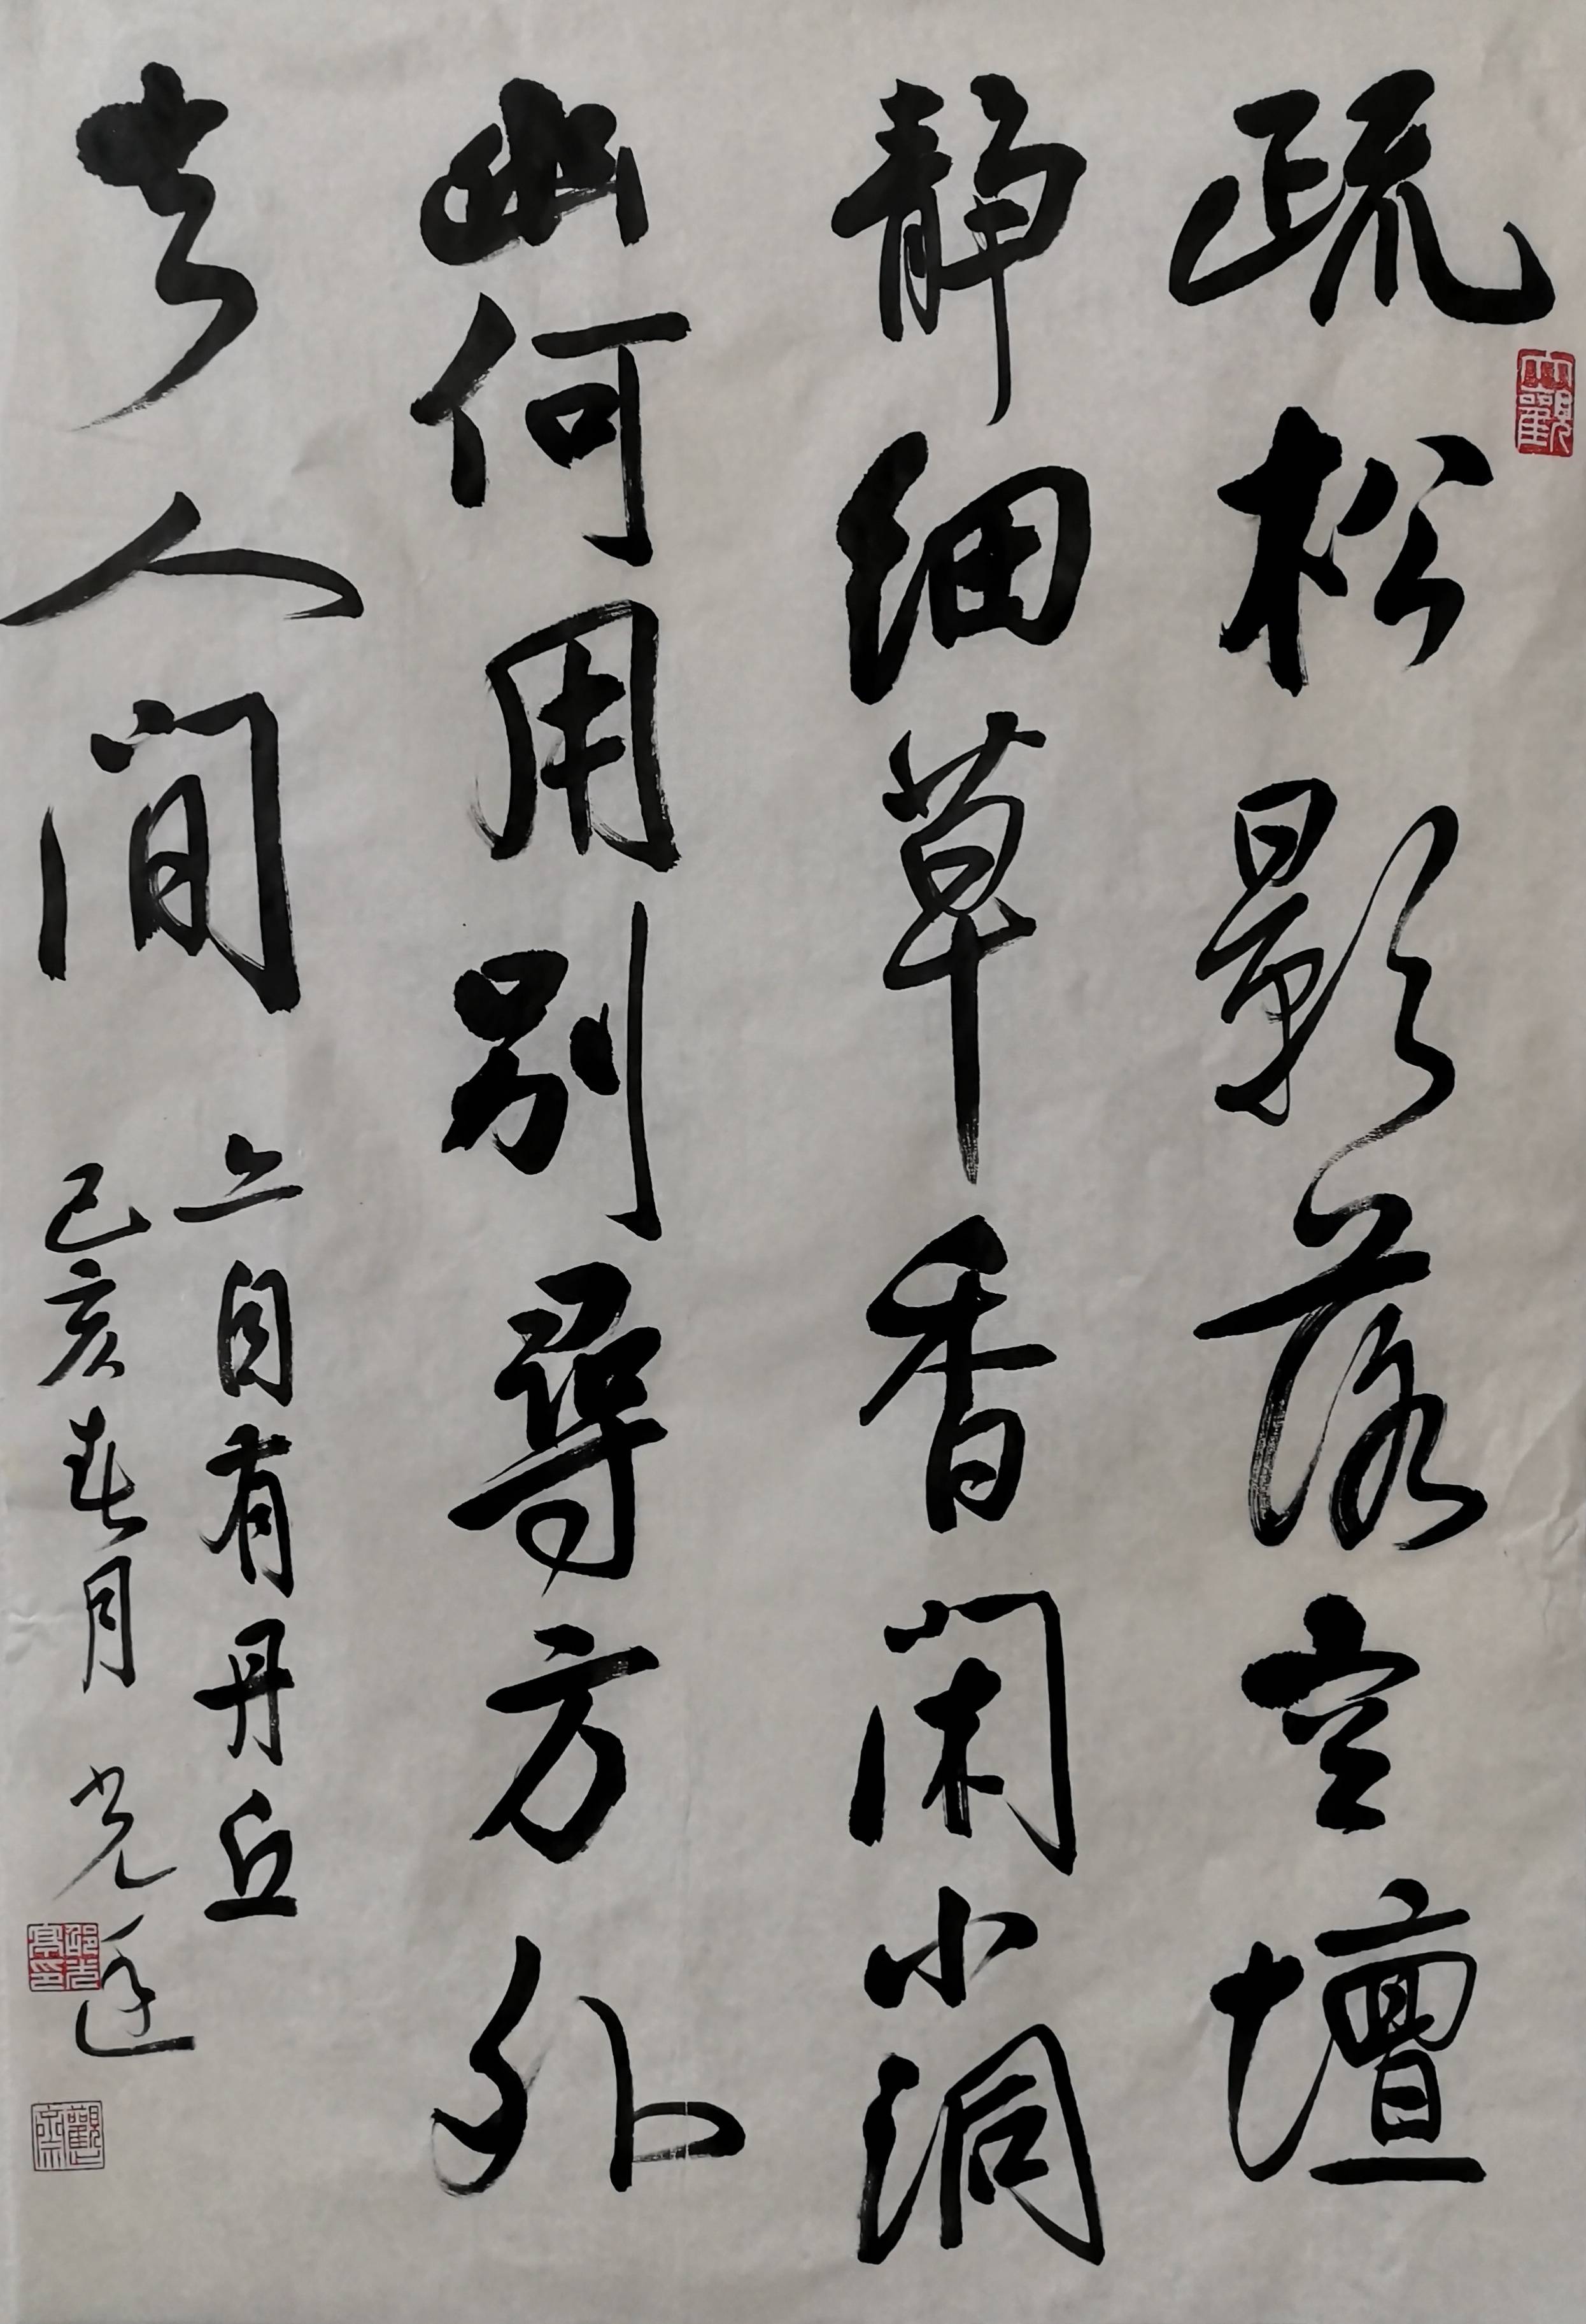 疏松影落空壇
静细草香闲小洞
幽何用别尋方外
去人间
亦自有丹丘
己亥春月 光